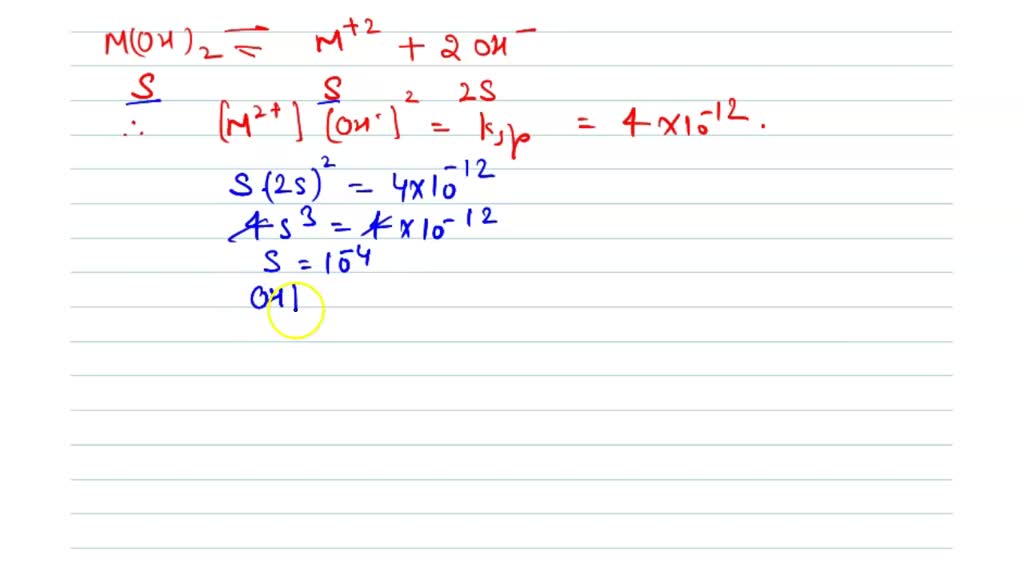 M(OH)₂ ⇌ M⁺² + 2OH⁻
S S 2S
∴ [M²⁺] (OH⁻)² = ksp = 4×10⁻¹².
S(2s)² = 4×10⁻¹²
4s³ = 4×10⁻¹²
S = 10⁻⁴
OH|